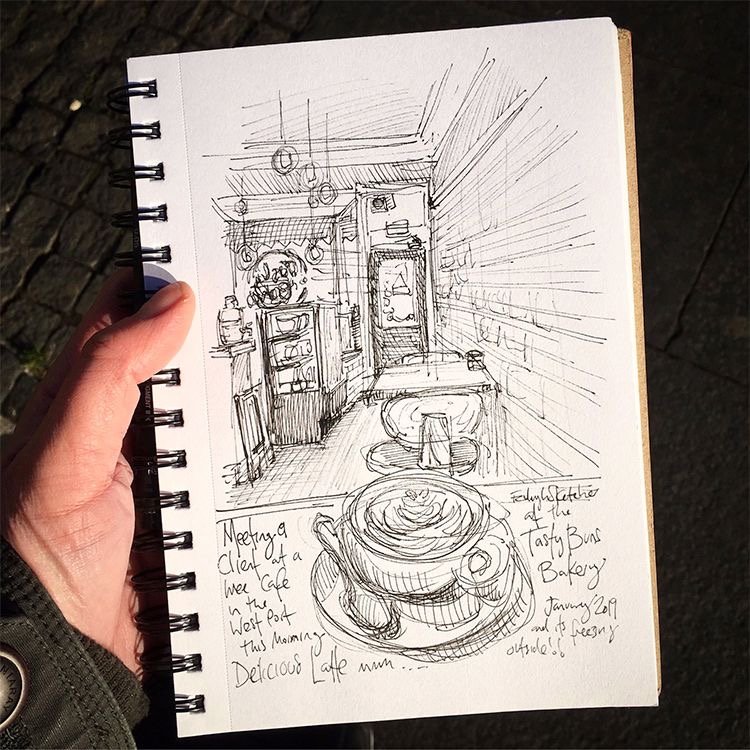 Meeting a
Client at a
wee Cafe
in the
West Port
this Morning
Delicious Latte mmm....
at the
Tasty Buns
Bakery
January 2019
and its freezing
outside!!